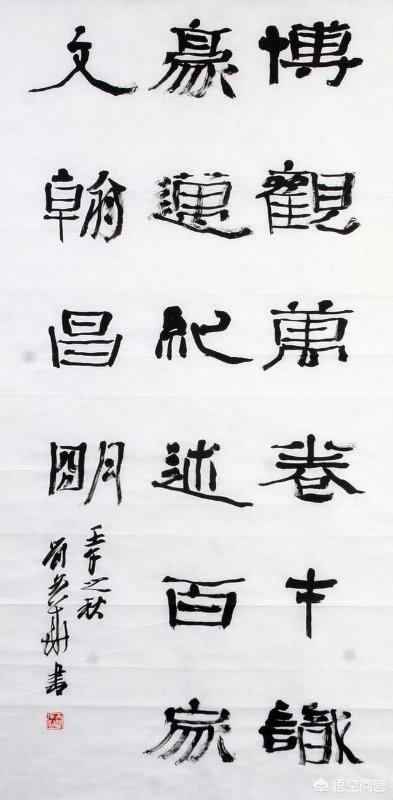 博觀萬卷才識
豪邁紀述百家
文翰昌明
壬午之秋
書
悟空问答